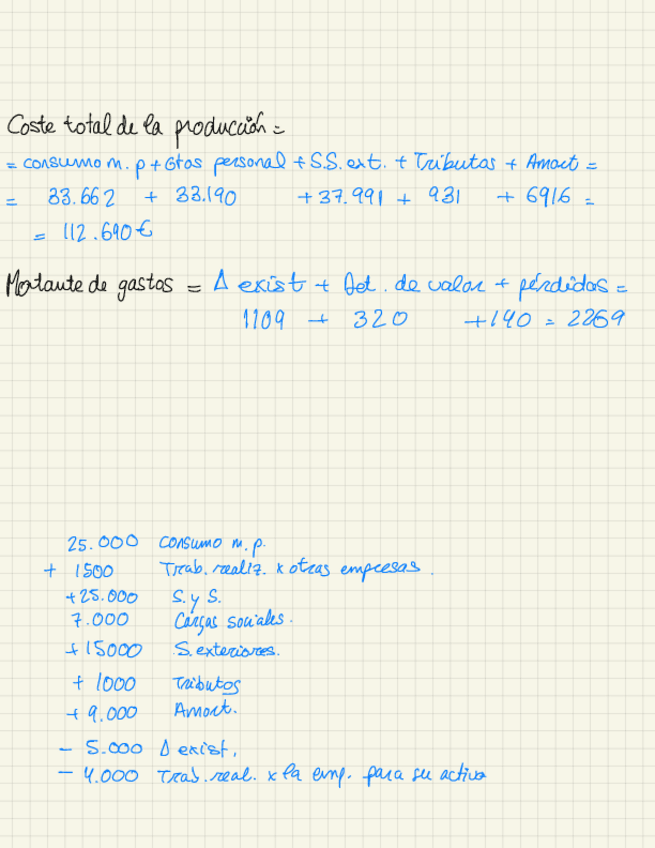 Coste total de la producción =
= consumo m. p + Gtos personal + S.S. ext. + Tributos + Amort =
= 33.662 + 33.190 + 37.991 + 931 + 6916 =
= 112.690 €
Montante de gastos = Δ exist + Det. de valor + pérdidas =
1109 + 320 + 140 = 2269
25.000 consumo m. p.
+ 1500 Trab. realiz. x otras empresas.
+25.000 S. y S.
7.000 Cargas sociales.
+15000 S. exteriores.
+ 1000 Tributos
+ 9.000 Amort.
- 5.000 Δ exist.
- 4.000 Trab. real. x la emp. para su activo